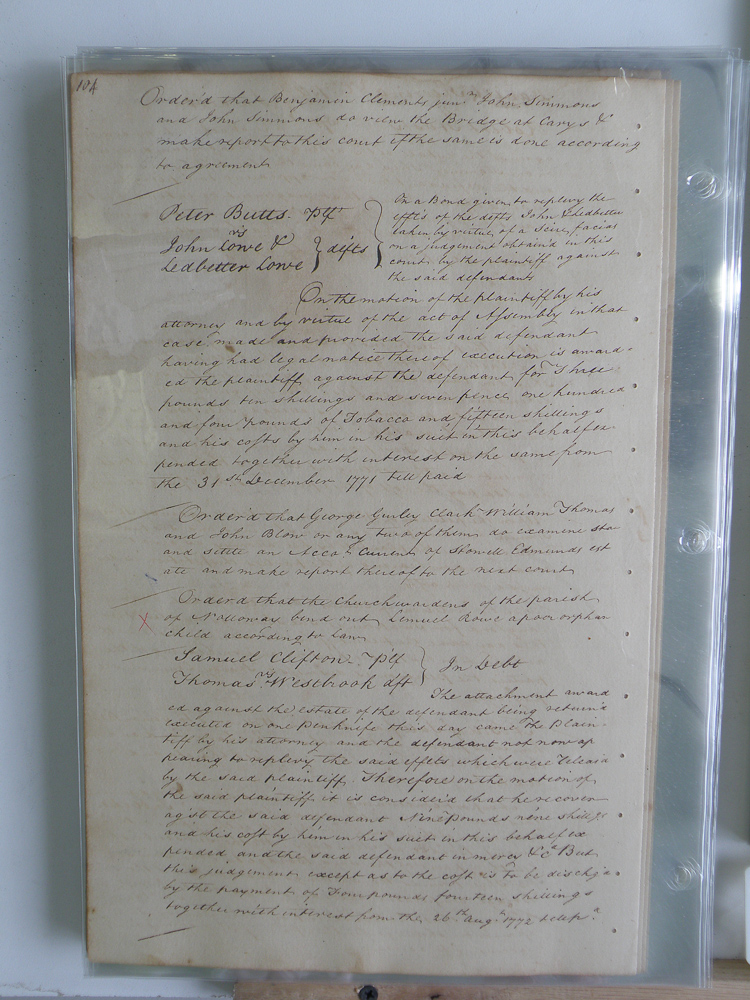 104
Order'd that Benjamin Clements junr John Simmons
and John Simmons do view the Bridge at Carys &
make report to this court if the same is done according
to agreement
Peter Butts. Plf
vs
John Lowe &
Ledbetter Lowe } defts
On a Bond given to replevy the
effts of the defts John & Ledbetter
taken by virtue of a Scire facias
on a judgement obtain'd in this
court by the plaintiff against
the said defendants
On the motion of the plaintiff by his
attorney and by virtue of the act of Assembly in that
case made and provided the said defendant
having had legal notice thereof execution is award-
ed the plaintiff against the defendant for Three
pounds ten shillings and seven pence one hundred
and four pounds of Tobacco and fifteen shillings
and his costs by him in his suit in this behalf ex
pended together with interest on the same from
the 31st December 1771 till paid
Order'd that George Gurley Clark William Thomas
and John Blow or any two of them do examine sta
and settle an Accot Current of Stowell Edmunds est
ate and make report thereof to the next court
Order'd that the Churchwardens of the parish
X of Nottoway bind out Lemuel Rowe a poor orphan
child according to Law
Samuel Clifton Plf
vs
Thomas Westbrook dft } In Debt
The attachment award
ed against the estate of the defendant being return'd
executed on one penknife this day came the Plain-
tiff by his attorney and the defendant not now ap
pearing to replevy the said effets which were
by the said plaintiff. Therefore on the motion of
the said plaintiff it is consider'd that he recover
agst the said defendant Nine pounds nine shillgs
and his cost by him in his suit in this behalf ex
pended and the said defendant in mercy &c. But
this judgement except as to the costs is to be dischga
by the payment of Four pounds fourteen shillings
together with interest from the 26th Augt 1772